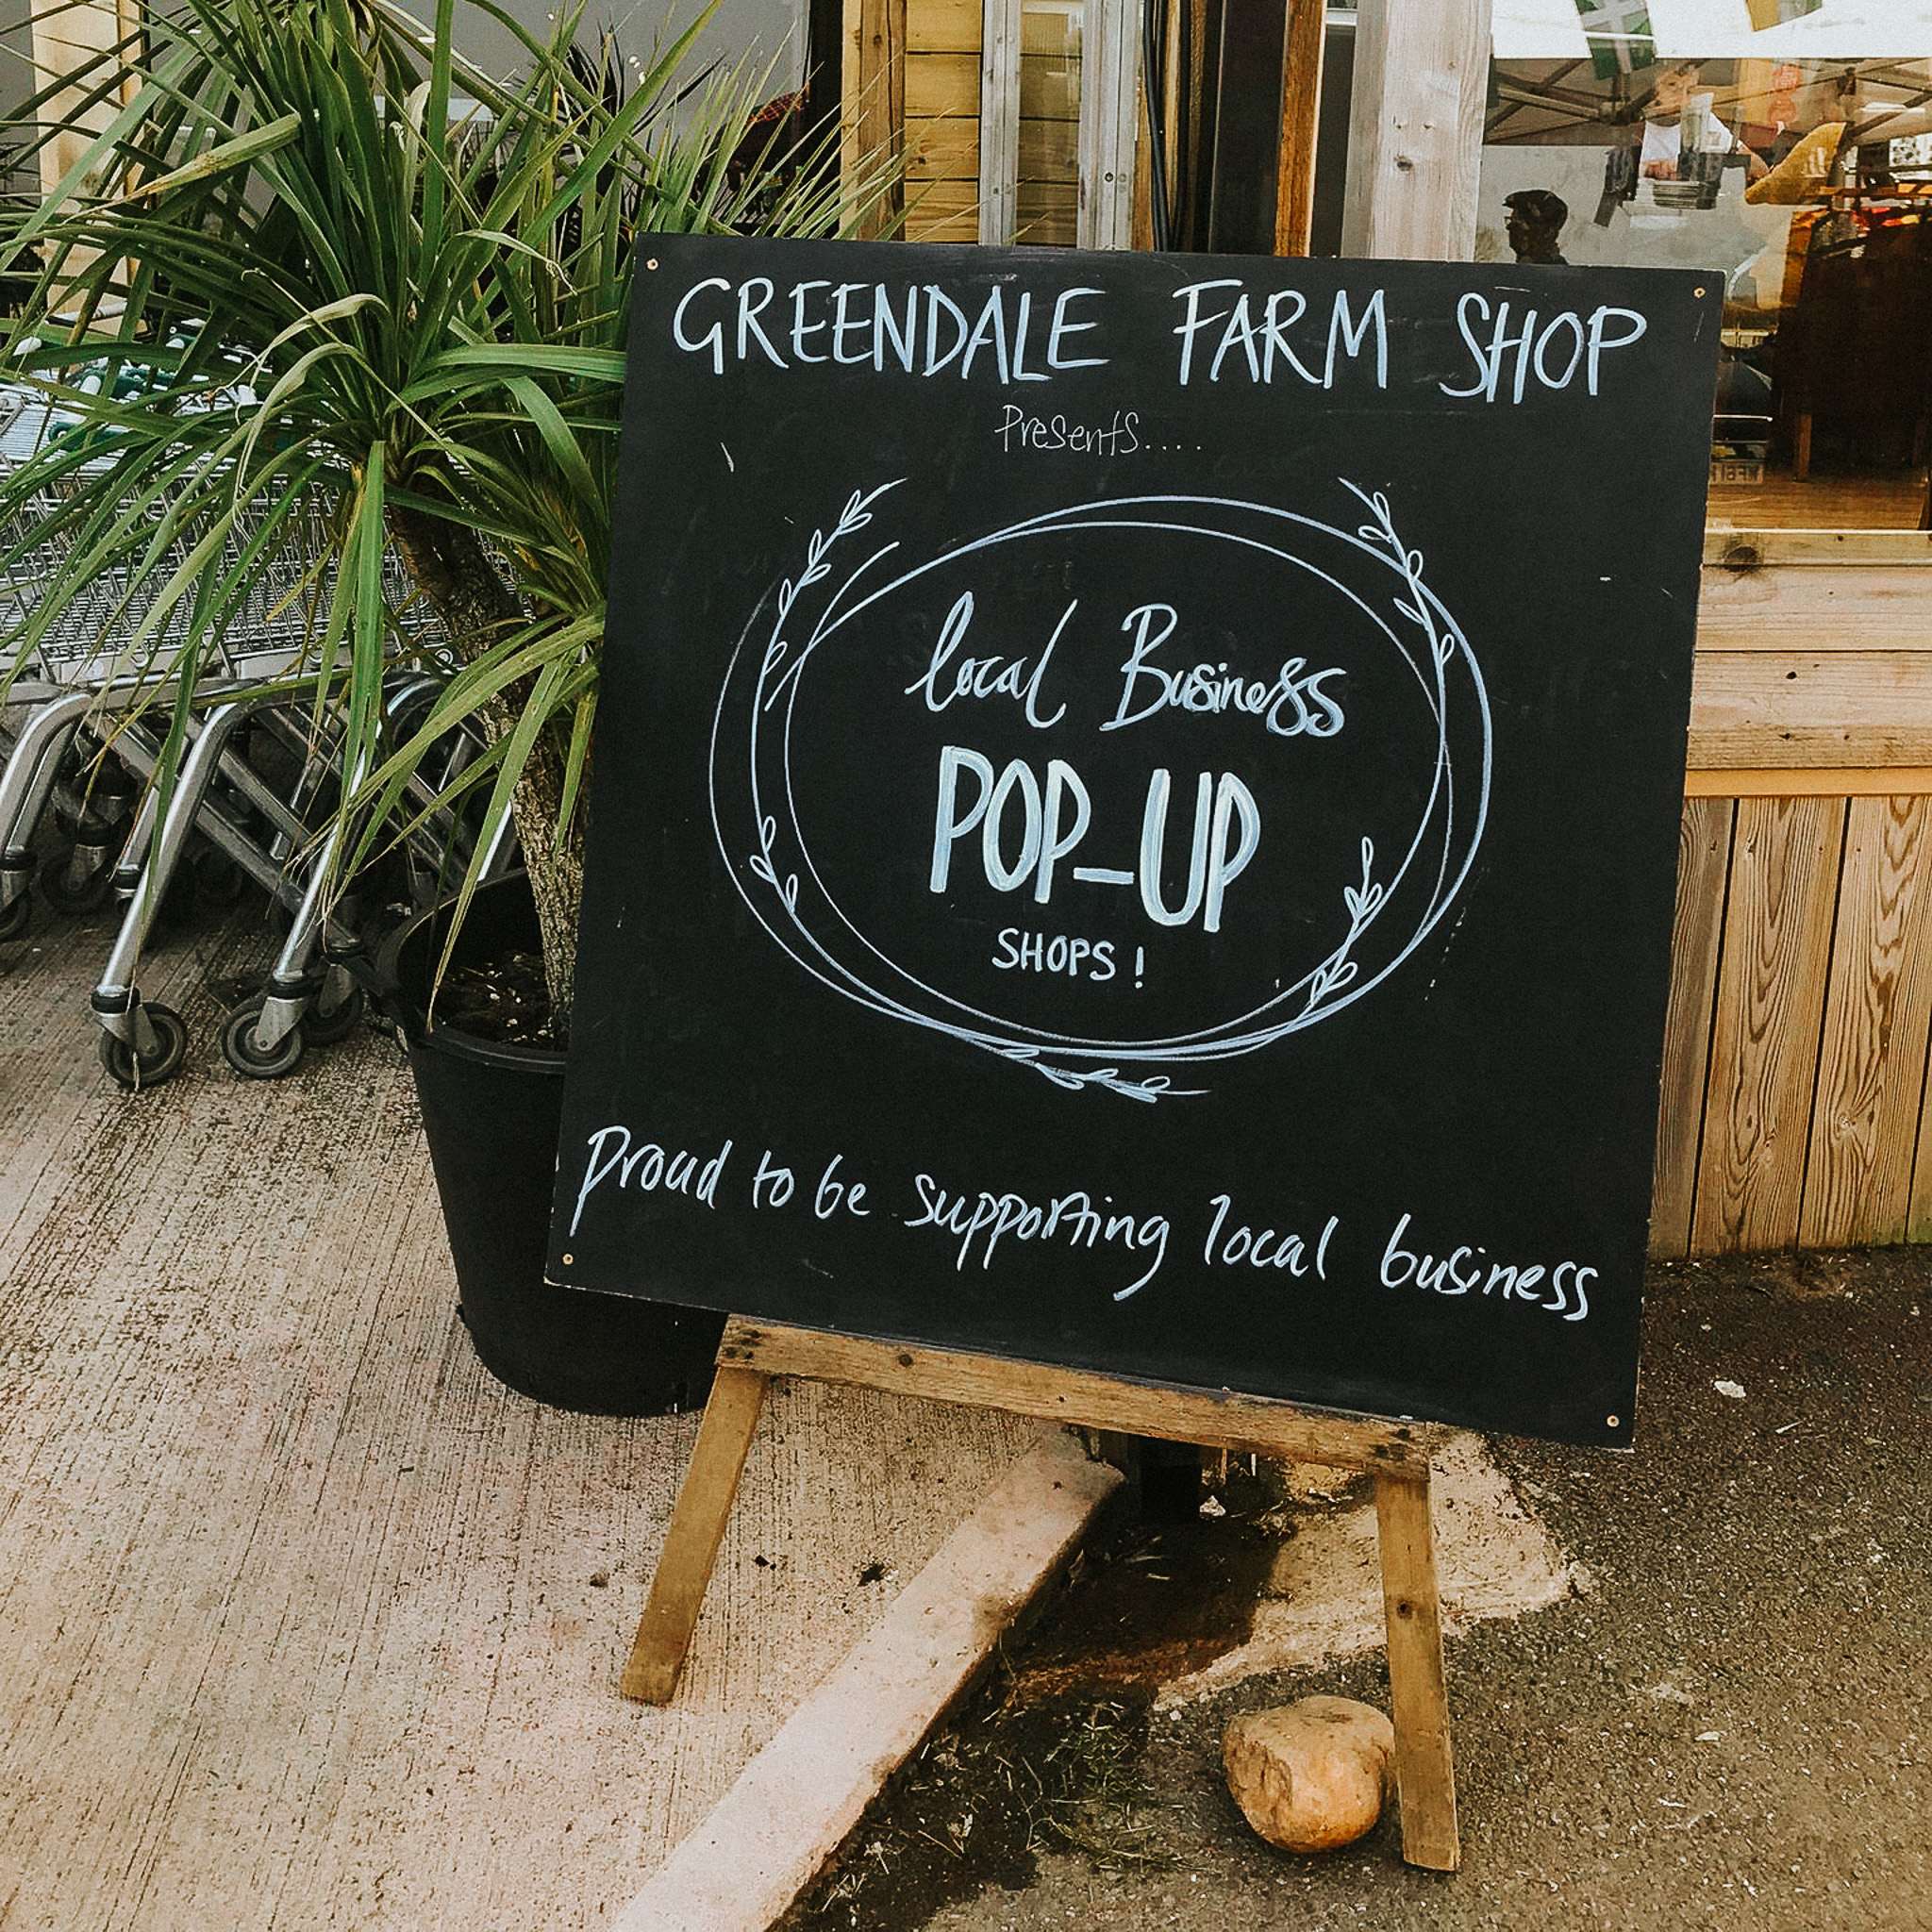 GREENDALE FARM SHOP
Presents....
local Business
POP-UP
SHOPS!
Proud to be supporting local business